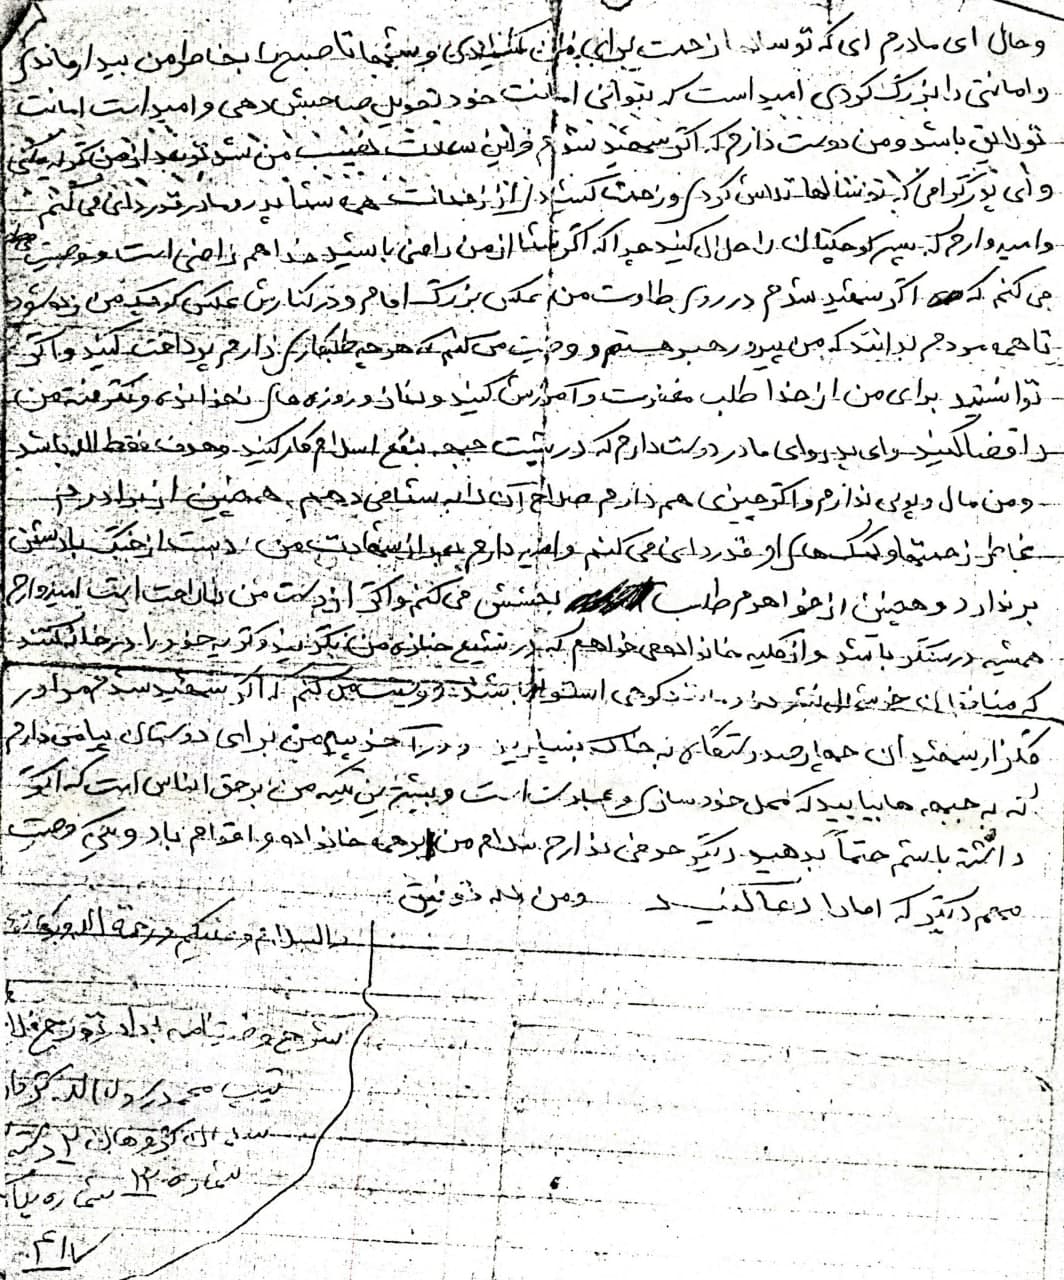 و حال ای مادرم ای که تو سالها زحمت برای من کشیدی و شبها تا صبح را بخاطر من بیدار ماندی
و امانتی را بزرگ کردی امید است که بتوانی امانت خود تحویل صاحبش دهی و امید است امانت
تو لایق باشد و من دوست دارم که اگر شهید شدم و این سعادت نصیب من شد تو بعد از من گریه نکنی
و ای پدر گرامی که تو سالها تلاش کردی و زحمت کشیدی از زحمات همه شما پدر و مادر قدردانی می کنم
و امیدوارم که پسر کوچکتان را حلال کنید چرا که اگر شما از من راضی باشید خدا هم راضی است و وصیت
می کنم که اگر شهید شدم در روی تابوت من عکس بزرگ امام و در کنارش عکس کوچک من زده شود
تا همه مردم بدانند که من پیرو رهبر هستم و وصیت می کنم که هر چه طلبکاری دارم پرداخت کنید و اگر
توانستید برای من از خدا طلب مغفرت و آمرزش کنید و نماز و روزه های نخوانده و نگرفته من
را قضا کنید و ای پدر و ای مادر دوست دارم که در پشت جبهه بنفع اسلام کار کنید و هدف فقط الله باشد
و من مال و پولی ندارم و اگر چیزی هم دارم صلاح آن را به شما می دهم. همچنین از برادرم
بخاطر زحمتها و کمک های او قدردانی می کنم و امید دارم بعد از شهادت من دست از جنگ با دشمن
برندارد و همچنین از خواهرم طلب بخشش می کنم و اگر از دست من ناراحت است امیدوارم
همیشه در سنگر باشد و از کلیه خانواده می خواهم که در تشییع جنازه من نگریند و گریه خود را در خانه کنند
که منافقان خوشحال نشوند و مانند کوهی استوار باشند و وصیت می کنم که اگر شهید شدم مرا در
گلزار شهیدان به خاک بسپارید و در آخر پیام من برای دوستان پیامی دارم
که به جبهه ها بیایید که محل خودسازی و عبادت است و بیشترین تکیه من بر حق الناس است که اگر
داشته باشم حتماً بدهید دیگر حرفی ندارم سلام من بر همه خانواده و اقوام باد و یک وصیت
مهم دیگر که امام را دعا کنید و من الله توفیق
والسلام و علیکم و رحمة الله و برکاته
تیپ محمد رسول الله
گروهان ۲ دسته
شماره ۱۳ شماره پلاک